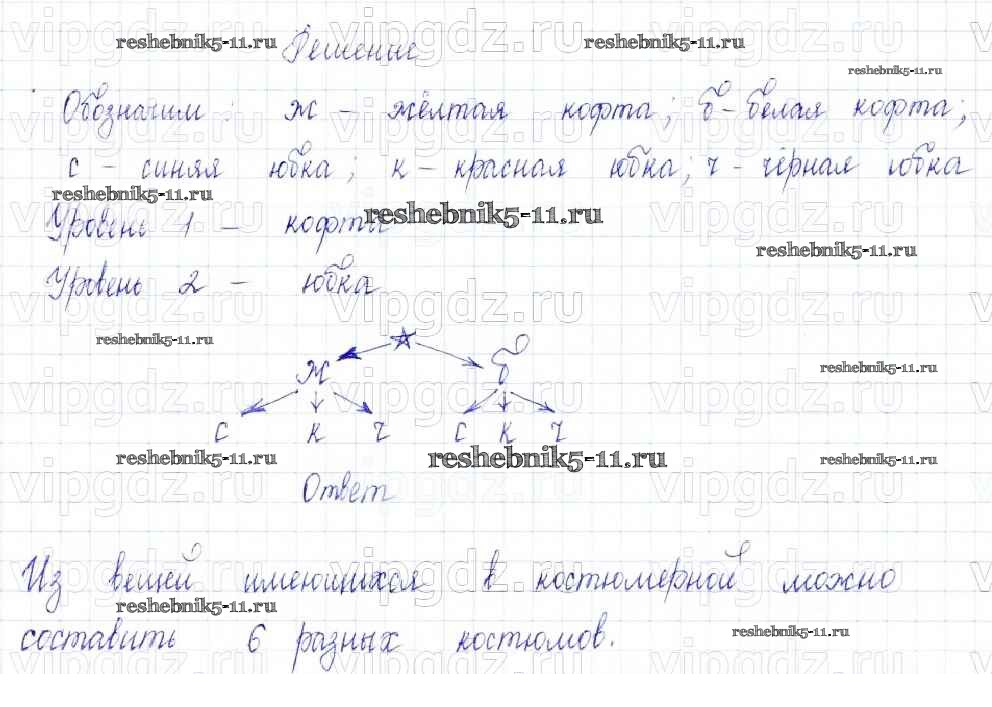 Решение
Обозначим : ж – жёлтая кофта; б – белая кофта;
с – синяя юбка; к – красная юбка; ч – чёрная юбка
Уровень 1 – кофты
Уровень 2 – юбка
ж б
с к ч с к ч
Ответ
Из вещей имеющихся в костюмерной можно
составить 6 разных костюмов.
reshebnik5-11.ru
reshebnik5-11.ru
reshebnik5-11.ru
reshebnik5-11.ru
reshebnik5-11.ru
reshebnik5-11.ru
reshebnik5-11.ru
reshebnik5-11.ru
reshebnik5-11.ru
reshebnik5-11.ru
reshebnik5-11.ru
reshebnik5-11.ru
reshebnik5-11.ru
vipgdz.ru